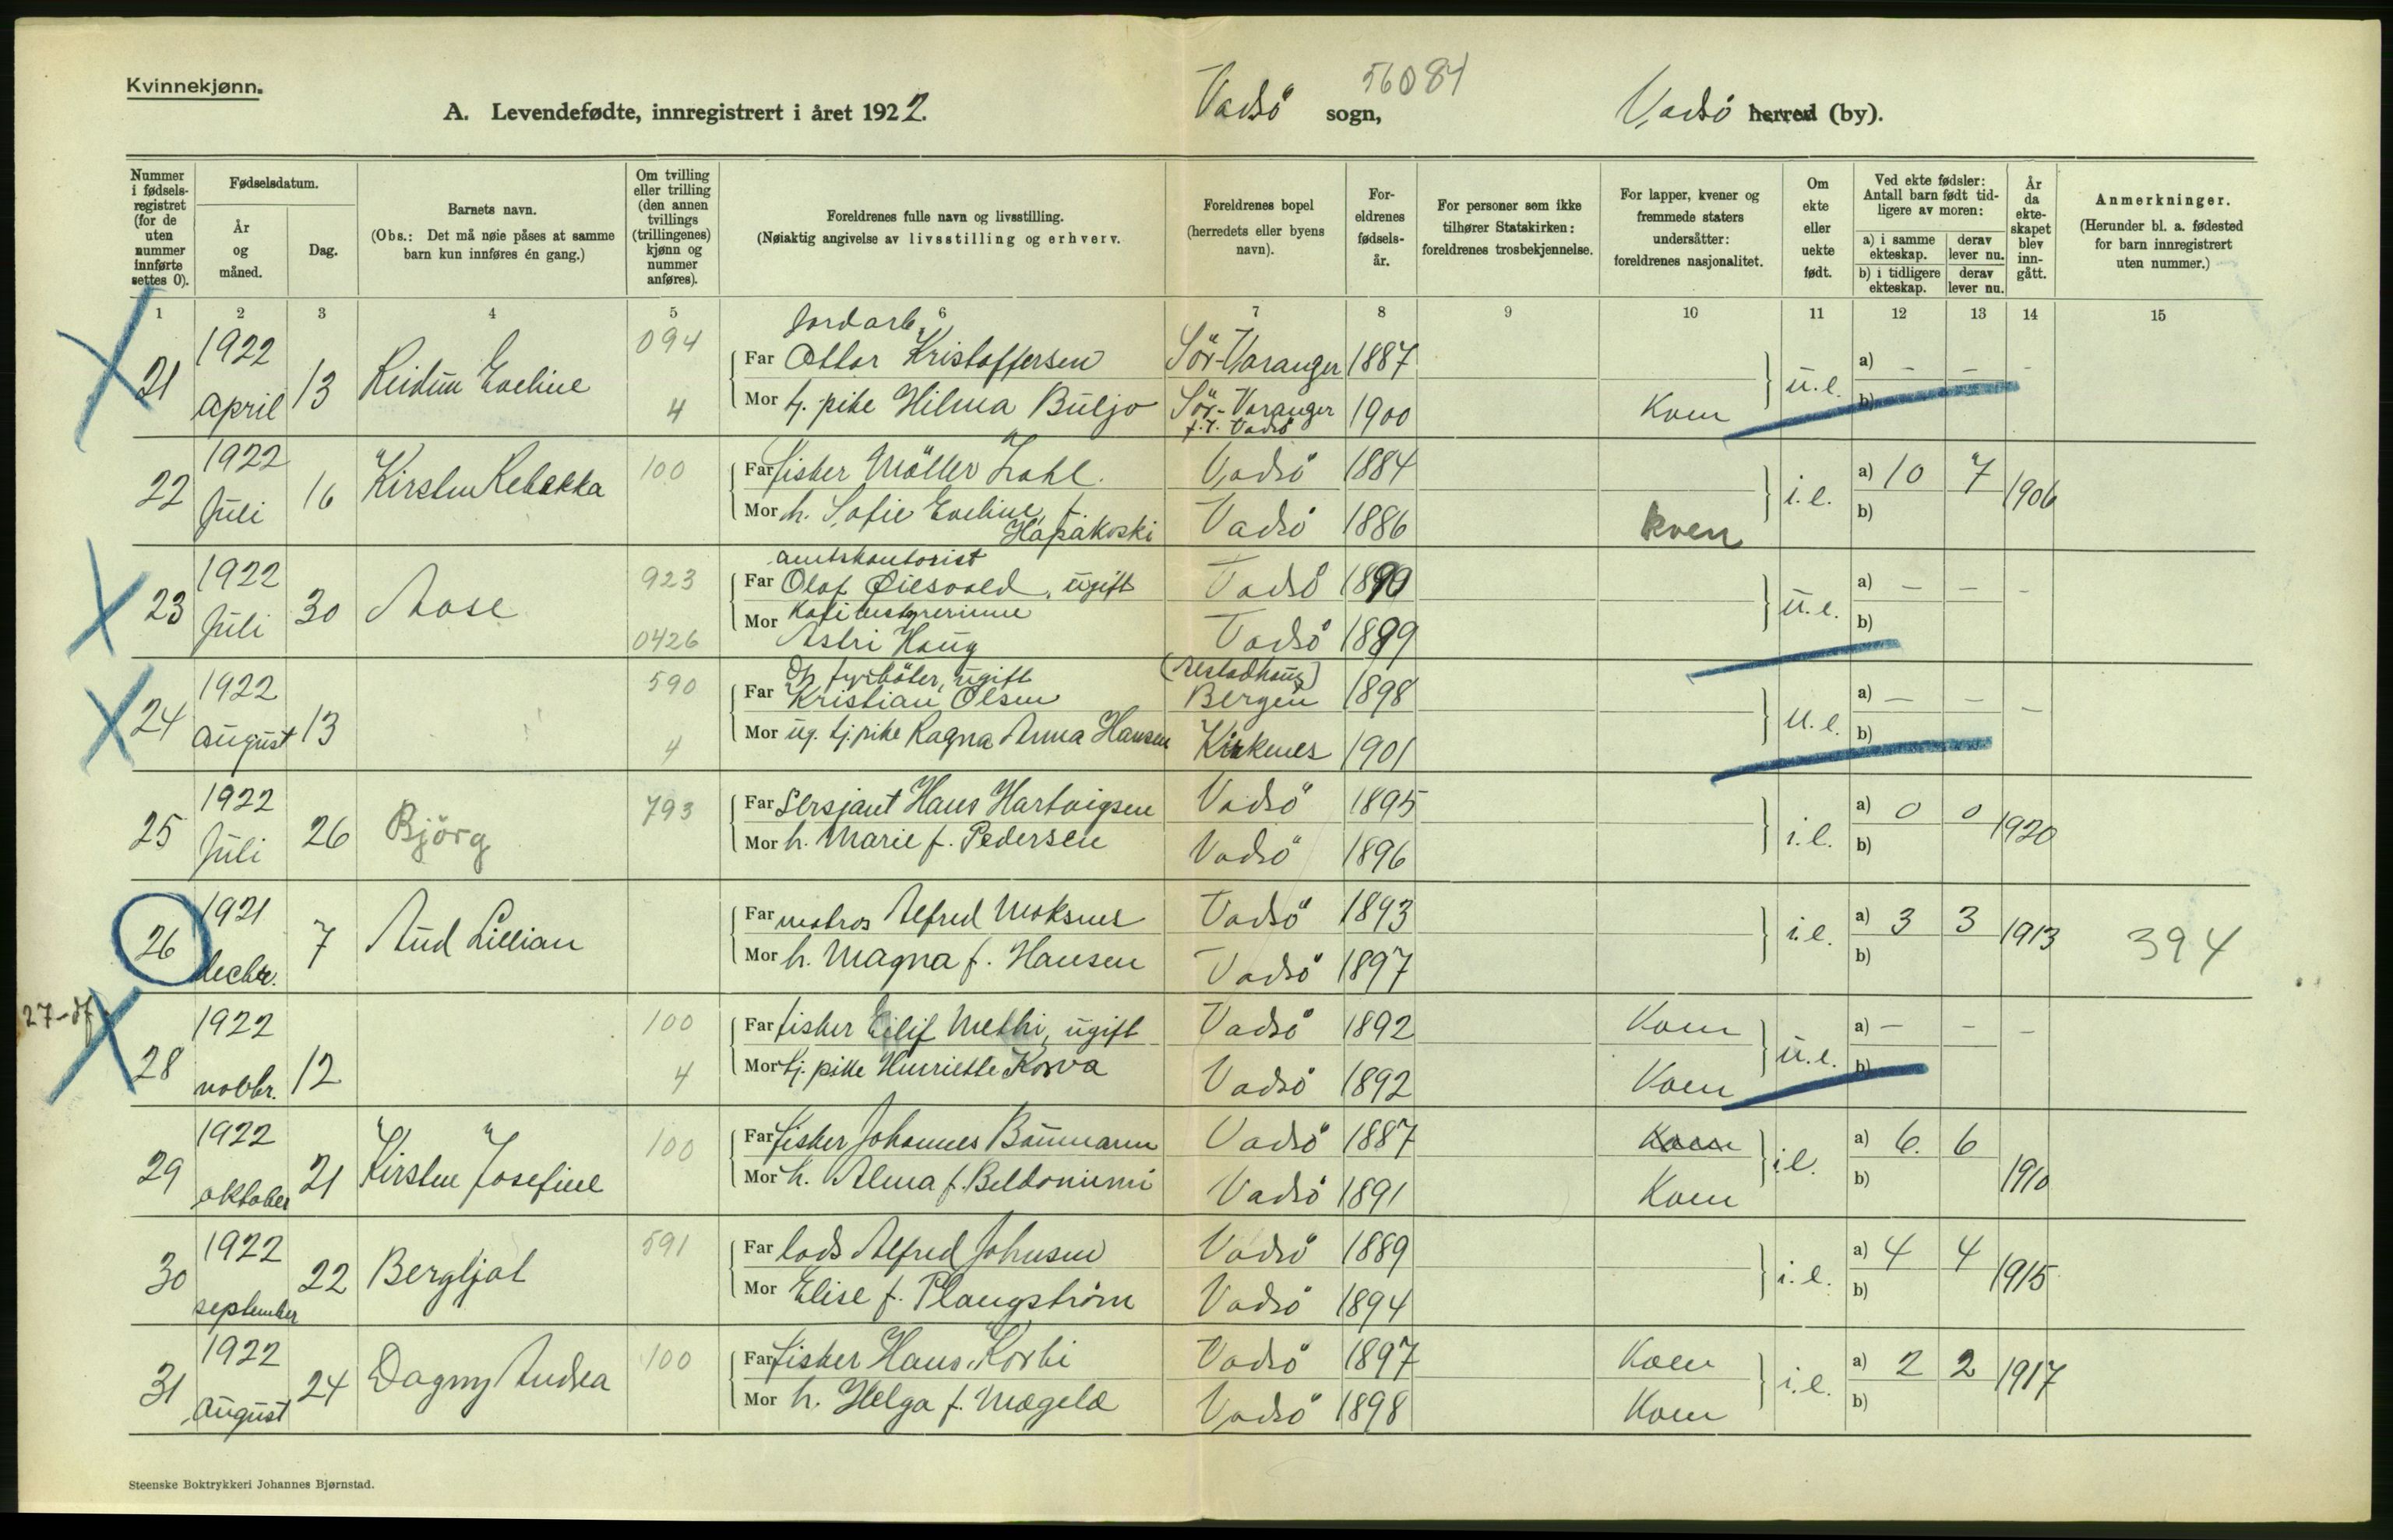 Kvinnekjønn.
A. Levendefødte, innregistrert i året 1922.
Vadsö sogn,
56084
Vadsö herred (by).
Nummer i fødsels-registret (for de uten nummer innførte settes 0).
Fødselsdatum.
År og måned.
Dag.
Barnets navn.
(Obs.: Det må nøie påses at samme barn kun innføres én gang.)
Om tvilling eller trilling (den annen tvillings (trillingenes) kjønn og nummer anføres).
Foreldrenes fulle navn og livsstilling.
(Nøiaktig angivelse av livsstilling og erhverv.
Foreldrenes bopel (herredets eller byens navn).
For-eldrenes fødsels-år.
For personer som ikke tilhører Statskirken: foreldrenes trosbekjennelse.
For lapper, kvener og fremmede staters undersåtter: foreldrenes nasjonalitet.
Om ekte eller uekte født.
Ved ekte fødsler: Antall barn født tid-ligere av moren:
a) i samme ekteskap.
derav lever nu.
b) i tidligere ekteskap.
derav lever nu.
År da ekte-skapet blev inn-gått.
Anmerkninger.
(Herunder bl. a. fødested for barn innregistrert uten nummer.)
1 2 3 4 5 6 7 8 9 10 11 12 13 14 15
21 1922 april 13 Reidun Eveline 094 4
jordarb.
Far Ottar Kristoffersen Sör-Varanger 1887
Mor tj. pike Hilma Buljo Sör-Varanger f.t. Vadsö 1900 Kven
u.e. a) – – –
b)
22 1922 Juli 16 Kirsten Rebekka 100
Far fisker Möller Zahl. Vadsö 1884
Mor h. Sofie Eveline, f. Hapakoski Vadsö 1886 kven
i.e. a) 10 7 1906
b)
23 1922 Juli 30 Aase 923 0426
amtskontorist
Far Olaf Øiesvold, ugift Vadsö 1890
Mor Kafebestyrerinne
Astri Haug Vadsö 1899
u.e. a) – – –
b)
24 1922 august 13 590 4
fyrböter, ugift
Far Kristian Olsen Bergen 1898
Mor ug. tj. pike Ragna Anna Hansen Kirkenes 1901
u.e. a) – – –
b)
25 1922 Juli 26 Björg 793
Far Sersjant Hans Hartvigsen Vadsö 1895
Mor h. Marie f. Pedersen Vadsö 1896
i.e. a) 0 0 1920
b)
26 1921 decbr. 7 Aud Lillian
Far matros Alfred Moksnes Vadsö 1893
Mor h. Magna f. Hansen Vadsö 1897
i.e. a) 3 3 1913 394
b)
27-df
28 1922 novbr. 12 100 4
Far fisker Eilif Methi, ugift Vadsö 1892 Kven
Mor tj. pike Henriette Korva Vadsö 1892 Kven
u.e. a) – – –
b)
29 1922 oktober 21 Kirsten Josefine 100
Far fisker Johannes Baumann Vadsö 1887 Kven
Mor h. Alma f. Beldoniemi Vadsö 1891 Kven
i.e. a) 6. 6 1910
b)
30 1922 september 22 Bergljot 591
Far lods Alfred Johnsen Vadsö 1889
Mor Elise f. Plangström Vadsö 1894
i.e. a) 4 4 1915
b)
31 1922 august 24 Dagny Andrea 100
Far fisker Hans Korbi Vadsö 1897 Kven
Mor h. Helga f. Mægelæ Vadsö 1898 Kven
i.e. a) 2 2 1917
b)
Steenske Boktrykkeri Johannes Bjørnstad.